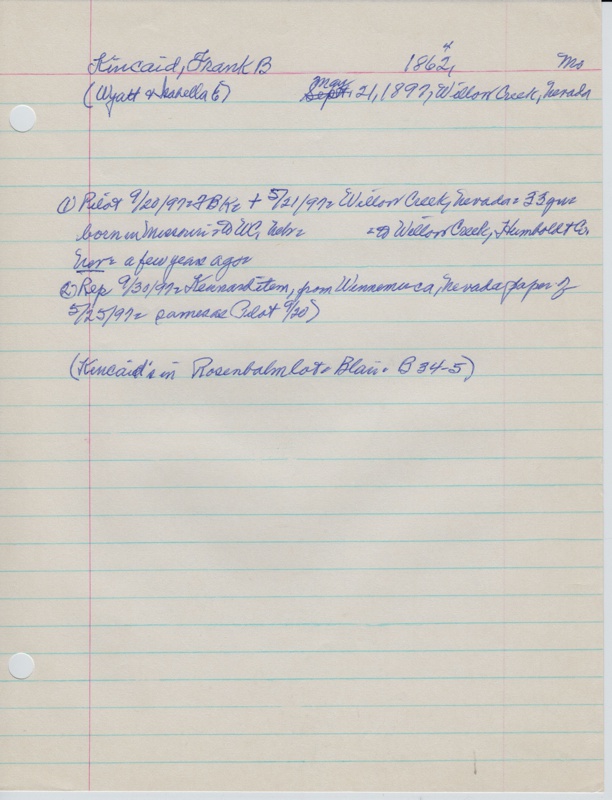 Kincaid, Frank B 1862, 4 Mo
(Wyatt & Isabella E) Sept. May 21, 1897, Willow Creek, Nevada
① Pilot 9/20/97= FBK= + 5/21/97= Willow Creek, Nevada= 33 yrs=
born in Missouri= to WC, Nebr= =to Willow Creek, Humboldt Co,
Nev= a few years ago=
② Rep 9/30/97= Kennard item, from Winnemuca, Nevada paper of
5/25/97= same as Pilot 9/20)
(Kincaid's in Rosenbalm lot= Blair= B 34-5)